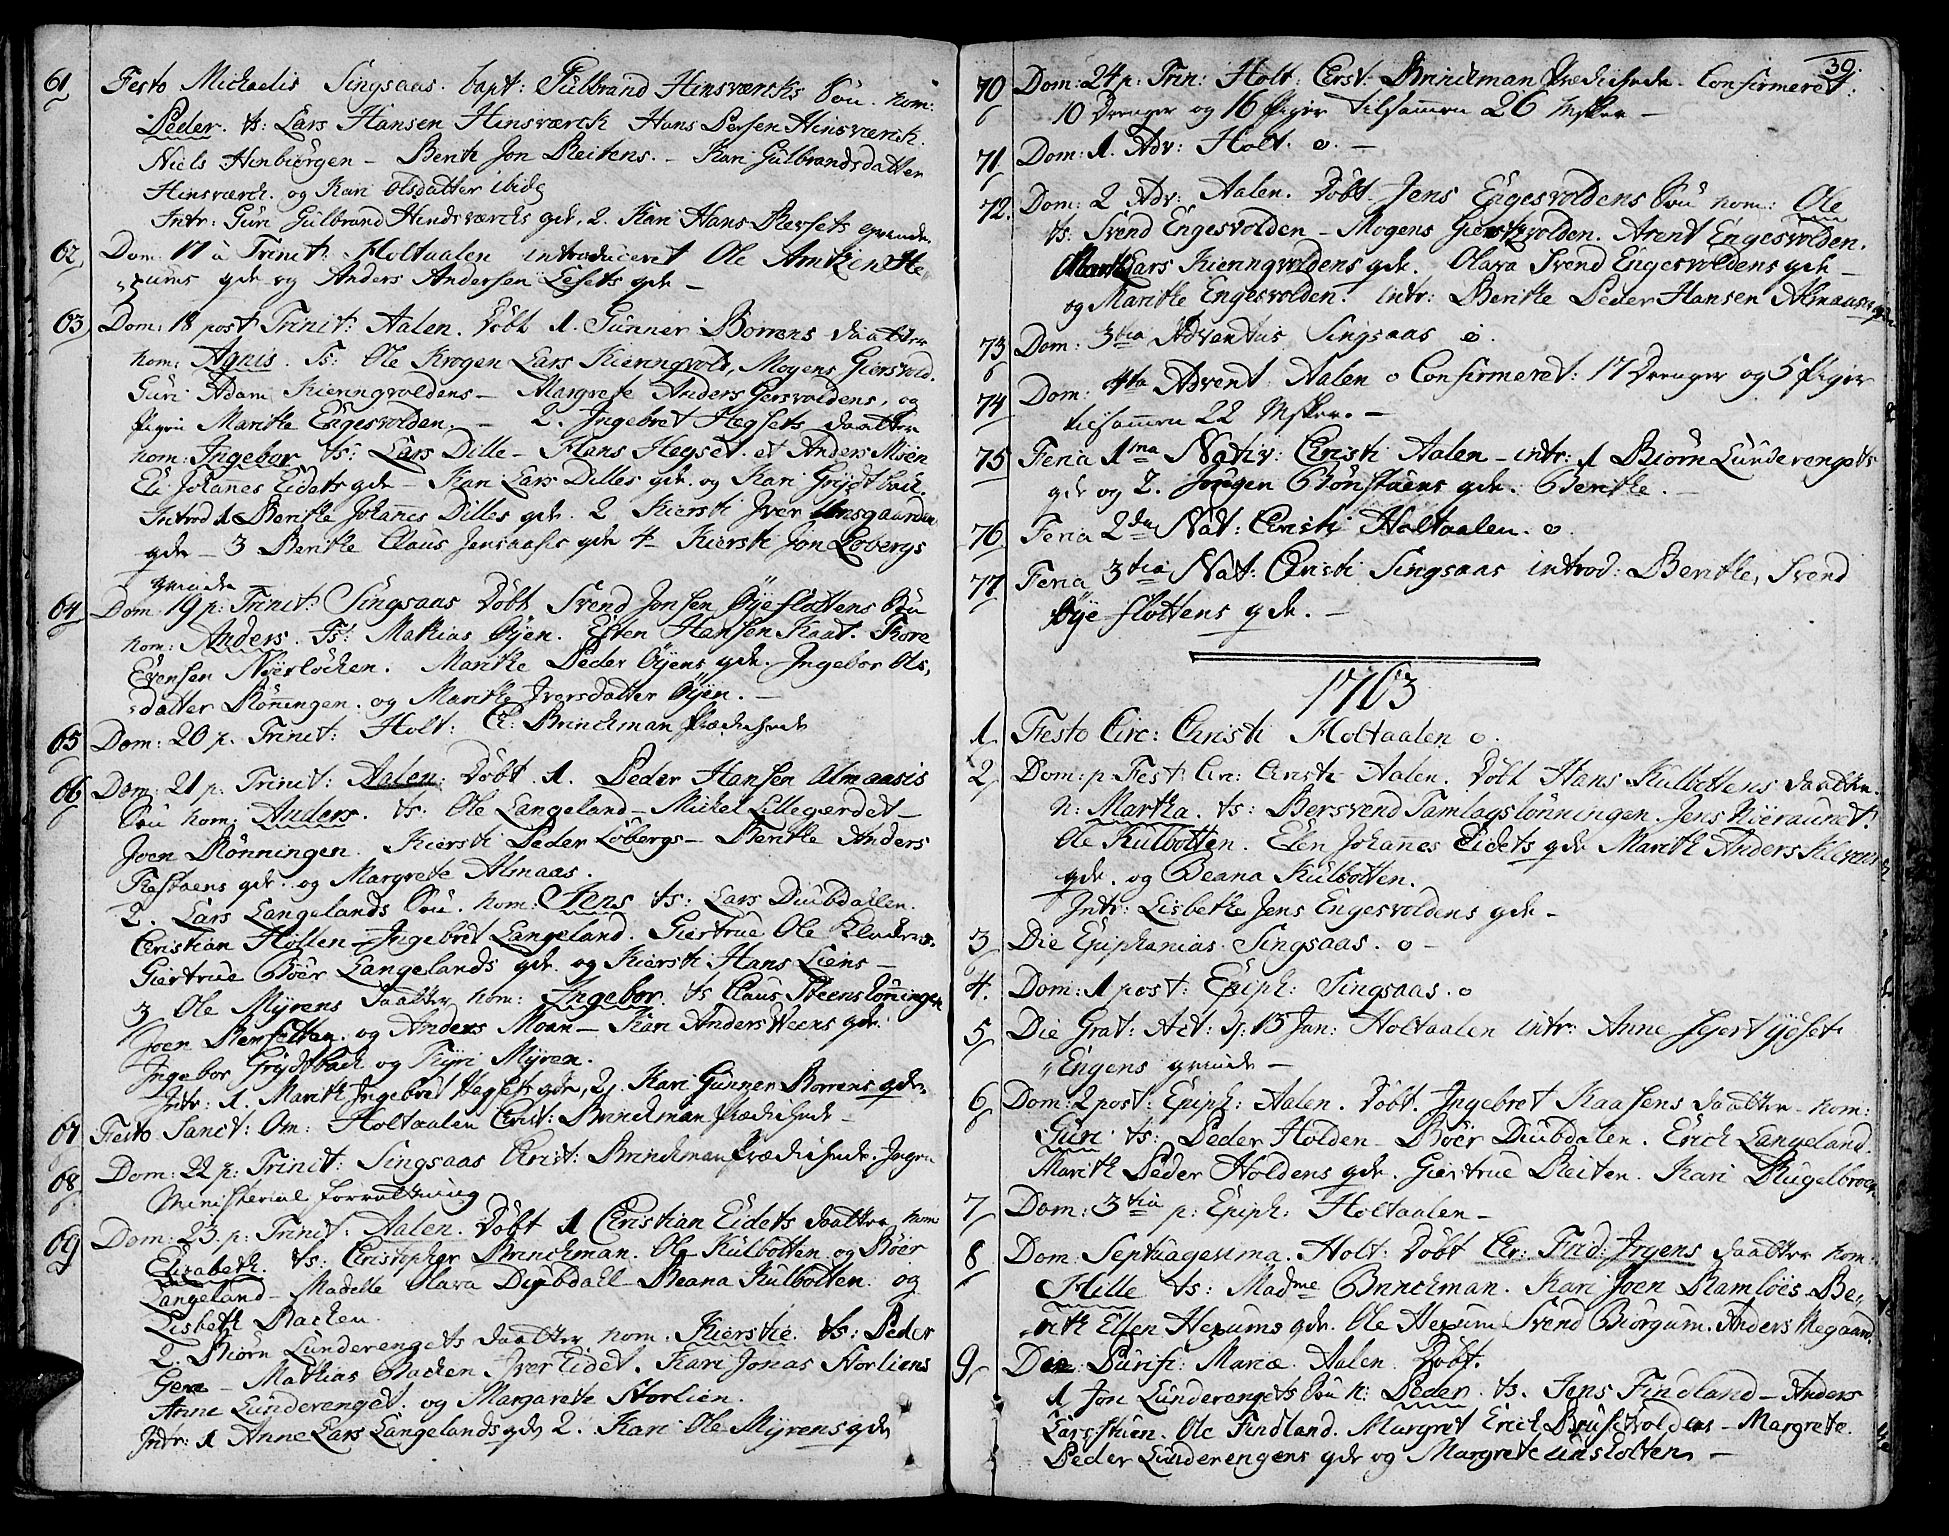 61 Festo Michaelis Singsaas. bapt: Gulbrand Hinsværcks Søn. nom:
Peder. ts: Lars Hansen Hinsværck Hans Persen Hinsværck.
Niels Hinbiørgen - Berit Jon Reitens. - Kari Gulbrandsdatter
Hinsværck. og Kari Olsdatter ibid.
Intr: Guri Gulbrand Hindsværcks qde, 2. Kari Hans qvinde.
62 Dom: 17 à Trinit: Holtaalen introduceret Ole He-
-xums qde og Anders Andersen qde -
63 Dom: 18 post Trinit: Aalen. Døbt 1. Gunner Borrens daatter
nom: Agnis. Ts: Ole Krogen Lars Kierringvold, Mogens Giersvold.
Guri Adam Kierringvoldens - Margrete Anders Gersvoldens, og
Pigen Marithe Engesvolden. - 2. Ingebret Hegsets daatter
nom: Ingebor ts: Lars Dille - Hans Hegset. et Anders Moen
Eli Johannes Eidets qde - Kari Lars Dilles qde. og Kari Grydtbak.
Introd 1 Berithe Johanes Dilles qde. 2 Kiersti Iver
qde - 3 Berithe Claus qde 4 - Kiersti Jon Løbergs
qvinde
64 Dom 19 p: Trinit: Singsaas Døbt Svend Jonsen Øyeflottens Søn
nom: Anders. Ts: Mathias Øyen. Esten Hansen Kaat. Thore
Evensen Marithe Peder Øyens qde. Ingebor Ols,
-datter Rønningen. og Marithe Iversdatter Øyen. -
65 Dom: 20 p. Trinit: Holt: Cr: Brinchman Prædikede
66 Dom: 21 p: Trinit: Aalen: Døbt 1. Peder Hansen Almaasis
Søn nom: Anders. ts: Ole Langeland - Mickel Lillegierdet -
Joen Rønningen. Kiersti Peder Løbergs - Berithe Anders
qde. og Margrete Almaas.
2. Lars Langelands Søn. nom: Jens ts: Lars Duubdallen.
Christian Holten - Ingebret Langeland. Giertrue Ole
Giertrue Boer Langelands qde. og Kiersti Hans Liens -
3 Ole Myrens daatter nom: Ingebor. ts Claus Steensløningen
Joen og Anders Moen - Kari Anders Weens qde.
Ingebor Grydtbak og Kyri Myren.
Intr: 1. Marith Ingebret Hegset qde, 2, Kari Gunner Borrens qde.
67 Festo Sanct: Om: Holtaalen Christ: Brinckman Prædikede -
68 Dom: 22 p: Trinit: Singsaas Christ: Brinckman Prædikede. Ingen
Ministerial Forretning
69 Dom: 23. p: Trinit: Aalen. Døbt 1 Christian Eidets daatter nom
Elisabeth. ts: Christopher Brinckman. Ole Kulbotten og Boer
Langeland - Madelle Olava Duubdahl - Beana Kulbotten. og
Lisbeth Bachen.
2. Biørn Lunderengets daatter nom: Kierstie. ts: Peder
Gere - Mathias Bachen Iver Eidet. Kari Jonas Storliens
Anne Lunderenget. og Margarete Storlien.
Intr: 1 Anne Lars Langelands qde 2. Kari Ole Myrens qde
39.
70 Dom: 24 p: Trin: Holt: Christ: Brinckman Prædikede. Confirmeret:
10 Drenger og 16 Piger tilsammen 26 Msker -
71 Dom: 1. Adv: Holt. o. -
72. Dom: 2 Adv: Aalen. Døbt Jens Engesvoldens Søn nom: Ole
ts: Svend Engesvolden - Mogens Giersvolden. Arent Engesvolden.
Lars Kierringvoldens qde. Olava Svend Engesvoldens qde -
og Marithe Engesvolden. intr: Berithe Peder Hansen Almaasis qde
73 Dom: 3tia Adventus Singsaas o.
74 Dom: 4ta Advent: Aalen o Confirmeret: 17 Drenger og 5 Piger
tilsammen 22 Msker. -
75 Feria 1ma Nativ: Christi Aalen - intr: 1 Biørn Lunderengets
qde og 2. Jørgen qde. Berithe. -
76 Feria 2da Nat: Christi Holtaalen. o.
77 Feria 3tia Nat: Christi Singsaas introd: Berithe, Svend
Øyeflottens qde. -
1763
1 Festo Circ: Christi Holtaalen o.
2 Dom: p Fest Cir: Christi Aalen. Døbt Hans Kulbottens daatter.
N: Martha. ts: Bersvend Tamlagslønningen. Jens Kieraunet.
Ole Kulbotten. Elen Johannes Eidets qde Marith Anders
qde. og Beana Kulbotten.
Intr: Lisbethe Jens Engesvoldens qde -
3 Die Epiphanias Singsaas. o -
4. Dom: 1 post: Epiph: Singsaas. o
5 Die Grat: Act: d: 13 Jan: Holtaalen intr: Anne
Engens qvinde -
6 Dom: 2 post: Epiph: Aalen. Døbt. Ingebret Kaasens daatter - nom:
Guri ts: Peder Holden - Boer Duubdalen. Erich Langeland.
Marith Peder Holdens qde. Giertrue Reiten. Kari Rugelbroen
7 Dom: 3tia p: Epiph: Holtaalen -
8 Dom: Septuagesima. Holt: Døbt Hr: Frid: Irgens daatter nom:
Hille ts: Madme Brinckman. Kari Joen Ramløes. Be-
-rith Ellen Hexums qde. Ole Hexum Svend Biørgum. Anders Hegaard.
9. Die Purif: Mariæ. Aalen. Døbt.
1 Jon Lunderengets Søn N: Peder. ts. Jens Findland - Anders
Larsstuen. Ole Findland. Margret Erich Bruseth - Margrete
Peder Lunderengens qde og Margrete -